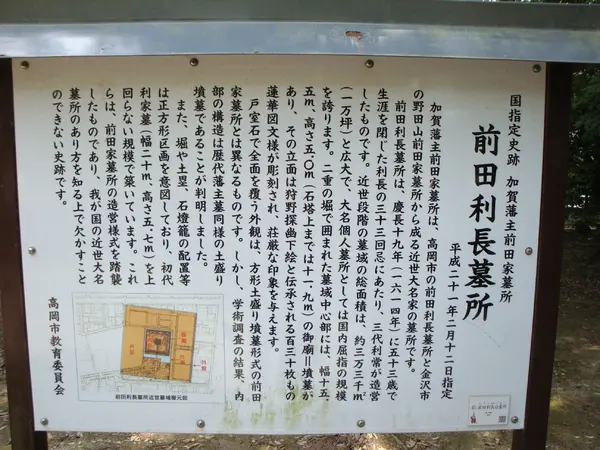 国指定史跡 加賀藩主前田家墓所
前田利長墓所
平成二十一年二月十二日指定
加賀藩主前田家墓所は、高岡市の前田利長墓所と金沢市
の野田山前田家墓所から成る近世大名家の墓所です。
前田利長墓所は、慶長十九年(一六一四年)に五十三歳で
生涯を閉じた利長の三十三回忌にあたり、三代利常が造営
したものです。近世段階の墓域の総面積は、約三万三千㎡
(一万坪)と広大で、大名個人墓所としては国内屈指の規模
を誇ります。二重の堀で囲まれた墓域中心部には、幅十五.
五m、高さ五.〇m(石塔上までは十一.九m)の御廟=墳墓が
あり、その立面は狩野探幽下絵と伝承される百三十枚もの
蓮華図文様が彫刻され、荘厳な印象を与えます。
戸室石で全面を覆う外観は、方形土盛り墳墓形式の前田
家墓所とは異なるものです。しかし、学術調査の結果、内
部の構造は歴代藩主墓同様の土盛り
墳墓であることが判明しました。
また、堀や土塁、石燈籠の配置等
は正方形区画を意図しており、初代
利家墓(幅二十m、高さ五.七m)を上
回らない規模で築いています。これ
らは、前田家墓所の造営様式を踏襲
したものであり、我が国の近世大名
墓所のあり方を知る上で欠かすこと
のできない史跡です。
高岡市教育委員会
前田利長墓所近世墓域復元図